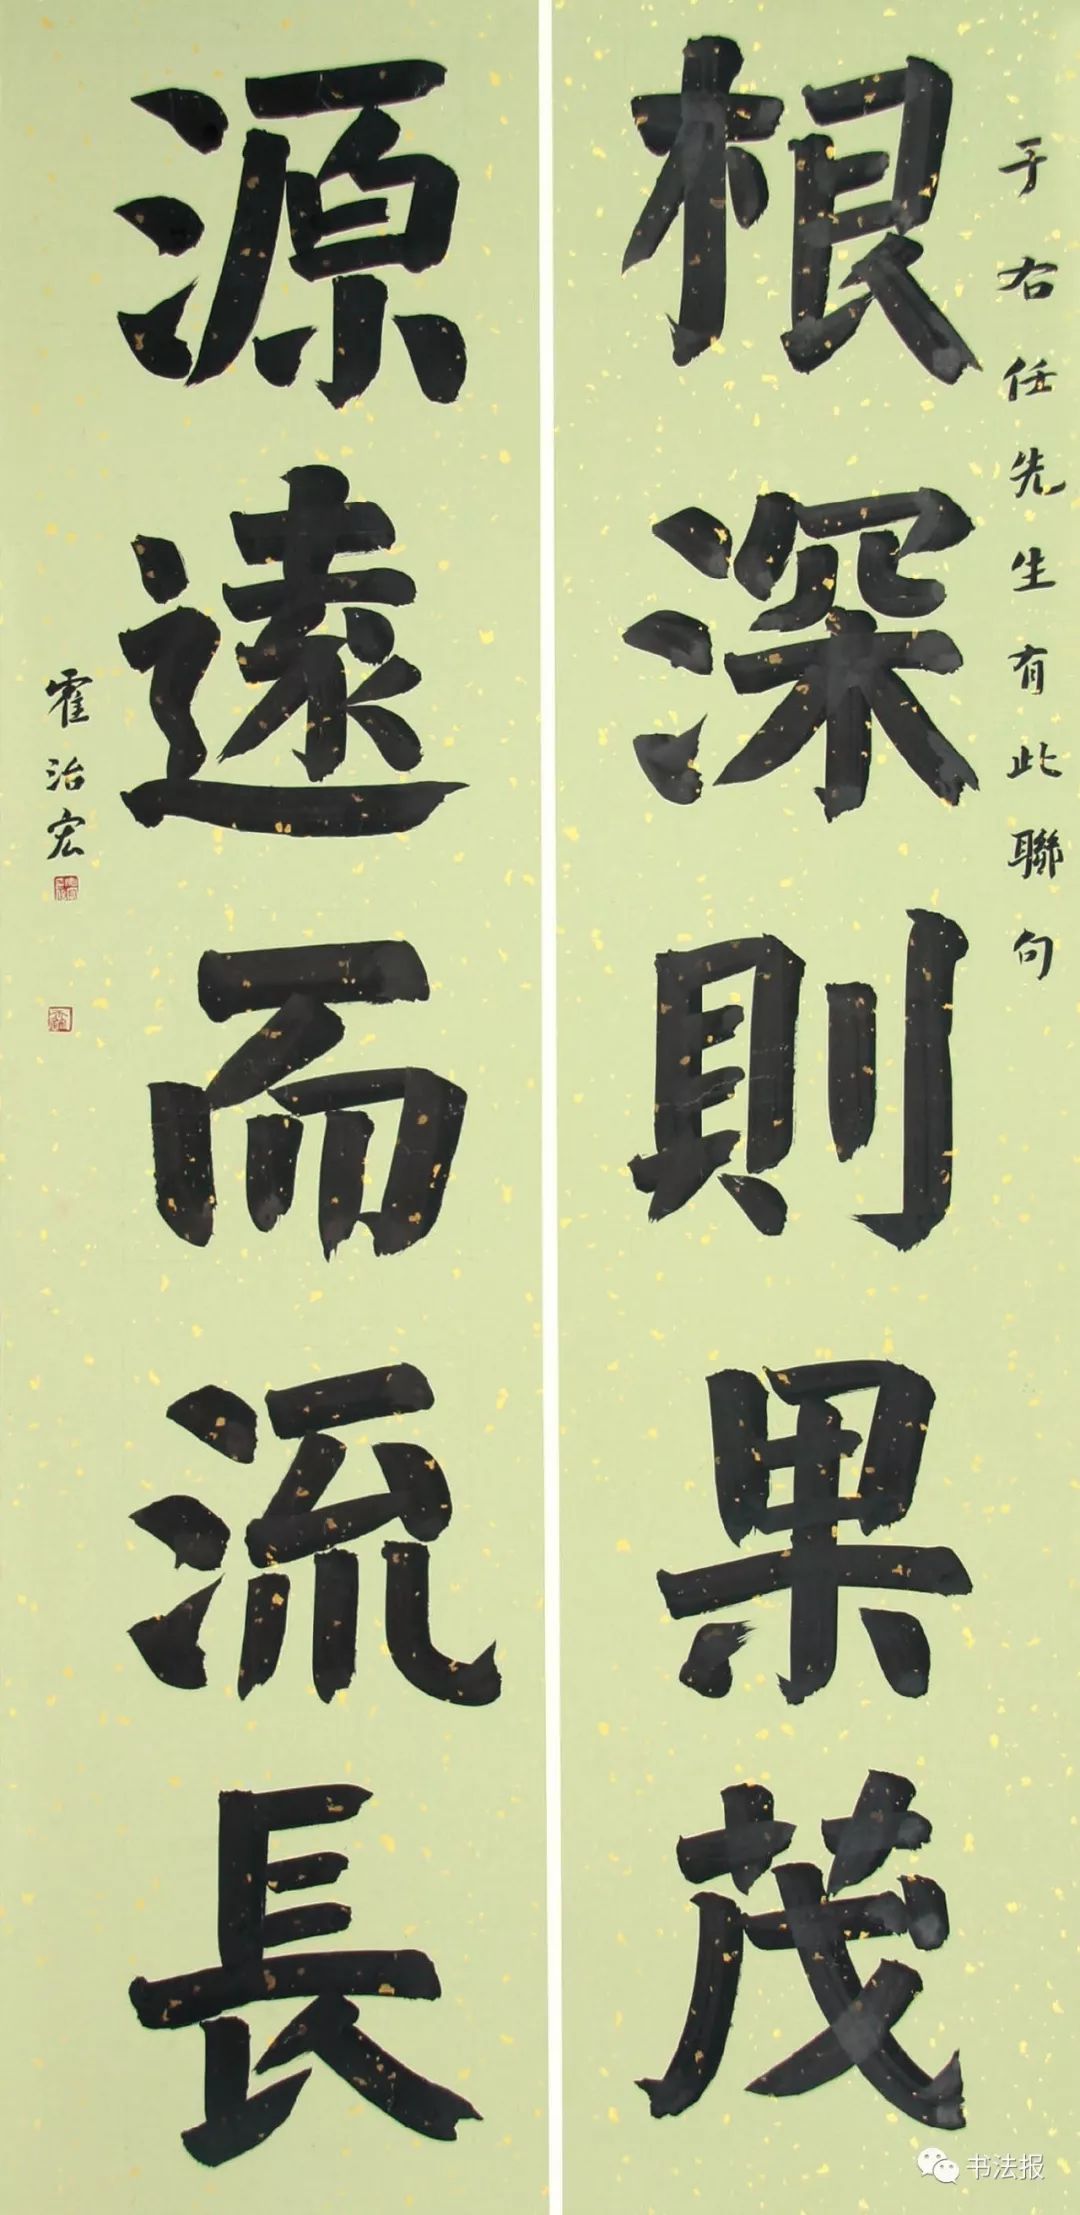 于右任先生有此聯句
根深則果茂
源遠而流長
霍治宏
书法报